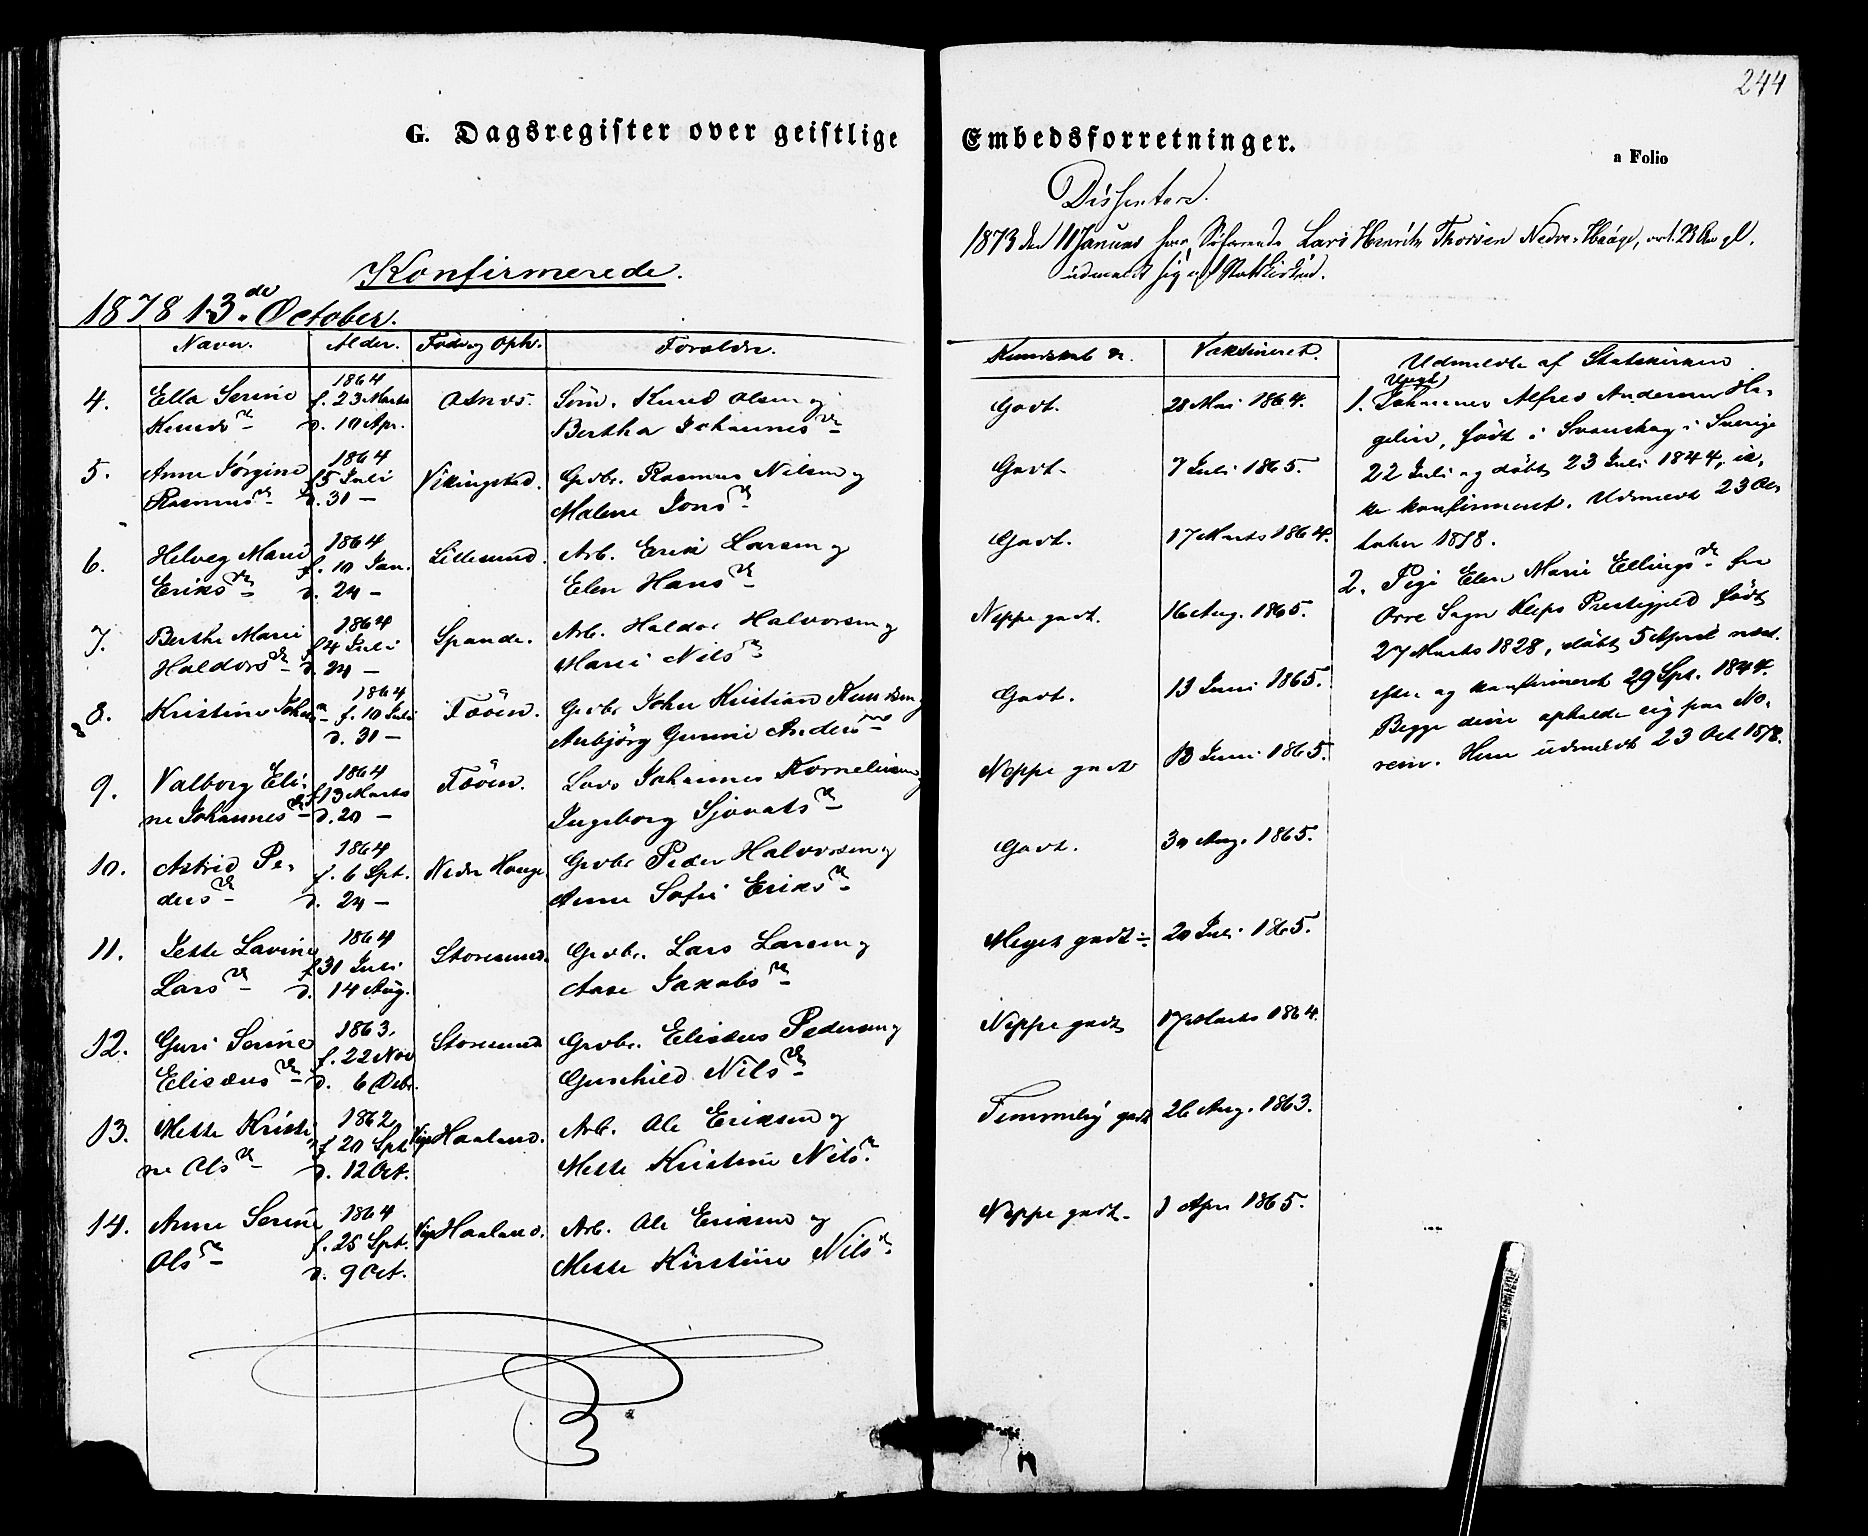 244
G. Dagsregister over geistlige Embedsforretninger.
a Folio
Dissentere.
1873 den 11 Januar har Lars Henrik Thorsen Nedre-Haage,
udmeldt sig af Statskirken.
Konfirmerede.
1878 13.de October.
Navn. Alder. Föde og Oph. Foreldre.
Kundskab &. Vaksineret.
4. Ella Serine Knudsdr 1864 f. 23 Marts d. 10 Apr. Asnes. Söm. Knud Olsen og
Bertha Johannesdr
Godt. 28 Mai 1864.
5. Anne Jörgine Rasmusdr 1864 f. 5 Juli d. 31 – Vikingstad. Grdbr. Rasmus Nilsen og
Malene Jonsdr
Godt. 7 Juli 1865.
6. Helveg Marie Eriksdr 1864 f. 10 Jan. d. 24 – Lillesund. Arb. Erik Larsen og
Elen Hansdr
Godt. 17 Marts 1864.
7. Berthe Marie Haldorsdr 1864 f. 4 Juli d. 24 – Spande. Arb. Haldor Halvorsen og
Marie Nilsdr
Neppe godt. 16 Aug. 1865.
8. Kristine 1864 f. 10 Juli d. 31 – Fööen. Grdbr. John Kristian Knudsen og
Anbjörg Gunine Andersdr
Godt. 13 Juni 1865.
9. Valborg Eli-
ne Johannesdr 1864 f. 13 Marts d. 20 – Fööen. Lods Johannes Korneliusen og
Ingeborg Sjovatsdr
Neppe godt 13 Juni 1865.
10. Astrid Pe-
dersdr 1864 f. 6 Spt. d. 24 – Nedre Hauge. Grdbr. Peder Halvorsen og
Anne Sofie Eriksdr
Godt. 30 Aug. 1865.
11. Jette Lavine
Larsdr 1864 f. 31 Juli d. 14 Aug. Storesund. Grdbr. Lars Larsen og
Aase Jakobsdr
Meget godt ÷ 20 Juli 1865.
12. Guri Serine
Elisæusdr 1863. f. 22 Nov d. 6 Debr. Storesund Grdbr. Elisæus Pedersen og
Gunhild Nilsdr
Neppe godt 17 Marts 1864.
13. Mette Kristi-
ne Olsdr 1862 f. 20 Spt d. 12 Oct. Haaland. Arb. Ole Eriksen og
Mette Kristine Nilsdr
Temmelig godt 26 Aug. 1863.
14. Anne Serine
Olsdr 1864 f. 25 Spt. d. 9 Oct. Haaland. Arb. Ole Eriksen og
Mette Kirstine Nilsdr
Neppe godt. 1 Apr 1865.
Udmeldte af Statskirken
1. Johannes Alfred Andersen Ha-
gelin, födt i Svanskog i Sverige
22 Juli og döbt 23 Juli 1844, ik-
ke konfirmeret. Udmeldt 23 Oc-
tober 1878.
2. Pige Elen Marie Ellingsdr fra
Orre Sogn Kleps Prestegjeld födt
27 Marts 1828, döbt 5 April næst-
efter og konfirmeret 29 Spt. 1844.
Begge disse opholde sig paa No-
rein. Hun udmeldt 23 Oct 1878.